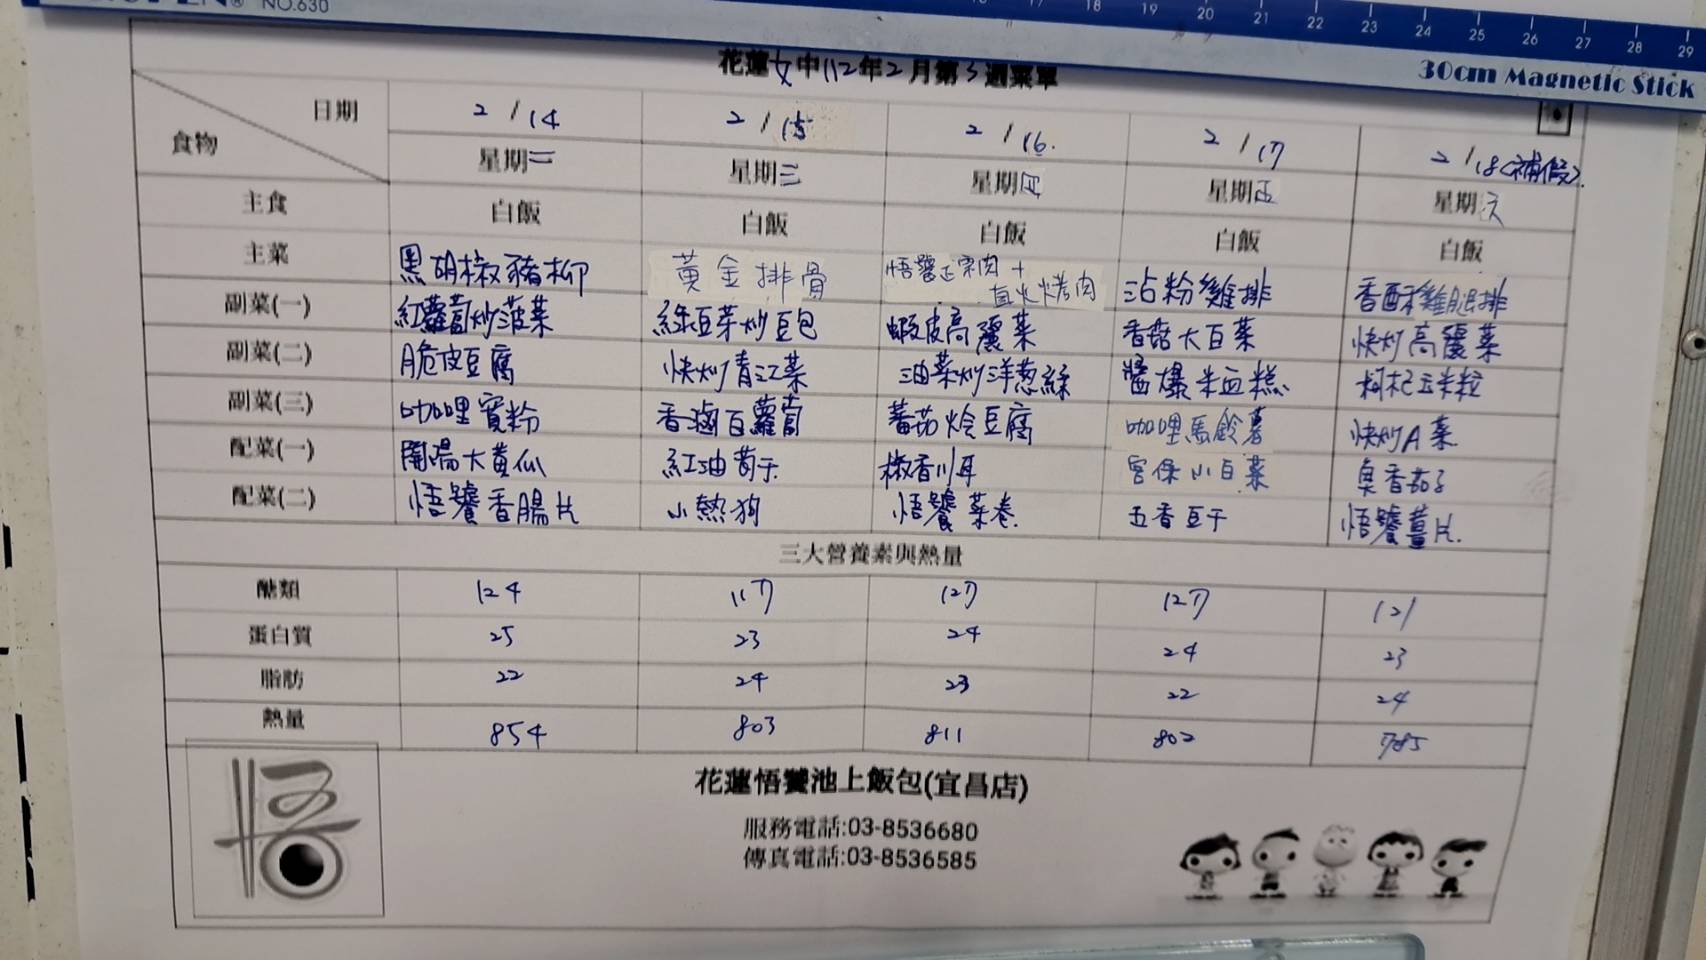 NO.630
18 19 20 21 22 23 24 25 26 27 28 29
30cm Magnetic Stick
花蓮女中112年2月第3週菜單
日期 2/14 2/15 2/16. 2/17 2/18(補假).
食物 星期二 星期三 星期四 星期五 星期六
主食 白飯 白飯 白飯 白飯 白飯
主菜 黑胡椒豬柳 黃金排骨 悟饕正宗肉+直火烤肉 沾粉雞排 香酥雞腿排
副菜(一) 紅蘿蔔炒菠菜 綠豆芽炒豆包 蝦皮高麗菜 香菇大白菜 快炒高麗菜
副菜(二) 脆皮豆腐 快炒青江菜 油菜炒洋葱絲 醬爆米血糕 枸杞玉米粒
副菜(三) 咖哩寬粉 香滷白蘿蔔 蕃茄燴豆腐 咖哩馬鈴薯 快炒A菜
配菜(一) 開陽大黃瓜 紅油筍干 椒香川耳 宮保小白菜 魚香茄子
配菜(二) 悟饕香腸片 小熱狗 悟饕菜卷. 五香豆干 悟饕薑片.
三大營養素與熱量
醣類 124 117 127 127 121
蛋白質 25 23 24 24 23
脂肪 22 24 23 22 24
熱量 854 803 811 802 785
悟
花蓮悟饕池上飯包(宜昌店)
服務電話:03-8536680
傳真電話:03-8536585